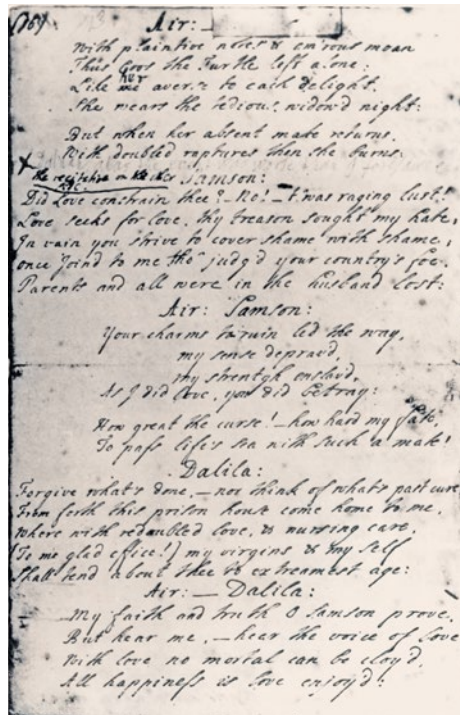 (16)
Air:
With plaintive notes & am'rous moan
Thus Coos the Turtle left alone:
Like me averse to each delight.
her
She wears the tedious widow'd night:
But when her absent mate returns.
With doubled raptures then she burns.
x
the recitative
Samson:
Did Love constrain thee? - No! - t'was raging lust!
Love seeks for love. thy treason sought my hate,
In vain you strive to cover shame with shame;
once Joind to me tho' judg'd your country's foe.
Parents and all were in the husband lost:
Air: Samson:
Your charms to ruin led the way,
my sense depravd,
my strentgh enslavd,
As I did love, you did betray:
How great the curse! - how hard my fate,
To pass life's sea with such a mate!
Dalila:
Forgive what's done, - nor think of what's past cure,
From forth this prison house come home to me,
Where with redoubled love, & nursing care,
(To me glad office!) my virgins & my self
Shall tend about thee to extreamest age:
Air: - Dalila:
My faith and truth O Samson prove,
But hear me, - hear the voice of love
With love no mortal can be cloy'd,
All happiness is love enjoy'd: